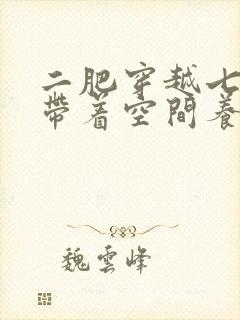 二肥穿越七
帶着空間養
魏雲峰